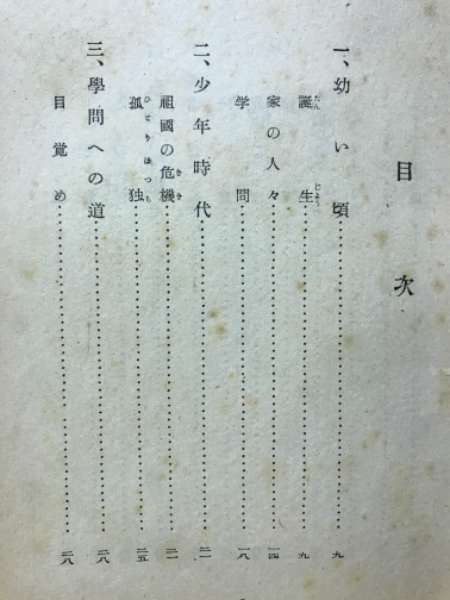 目次
一、幼い頃……九
誕生……九
家の人々……一四
学問……一八
二、少年時代……二一
祖國の危機……二一
孤独……二五
三、學問への道……二八
目覚め……二八